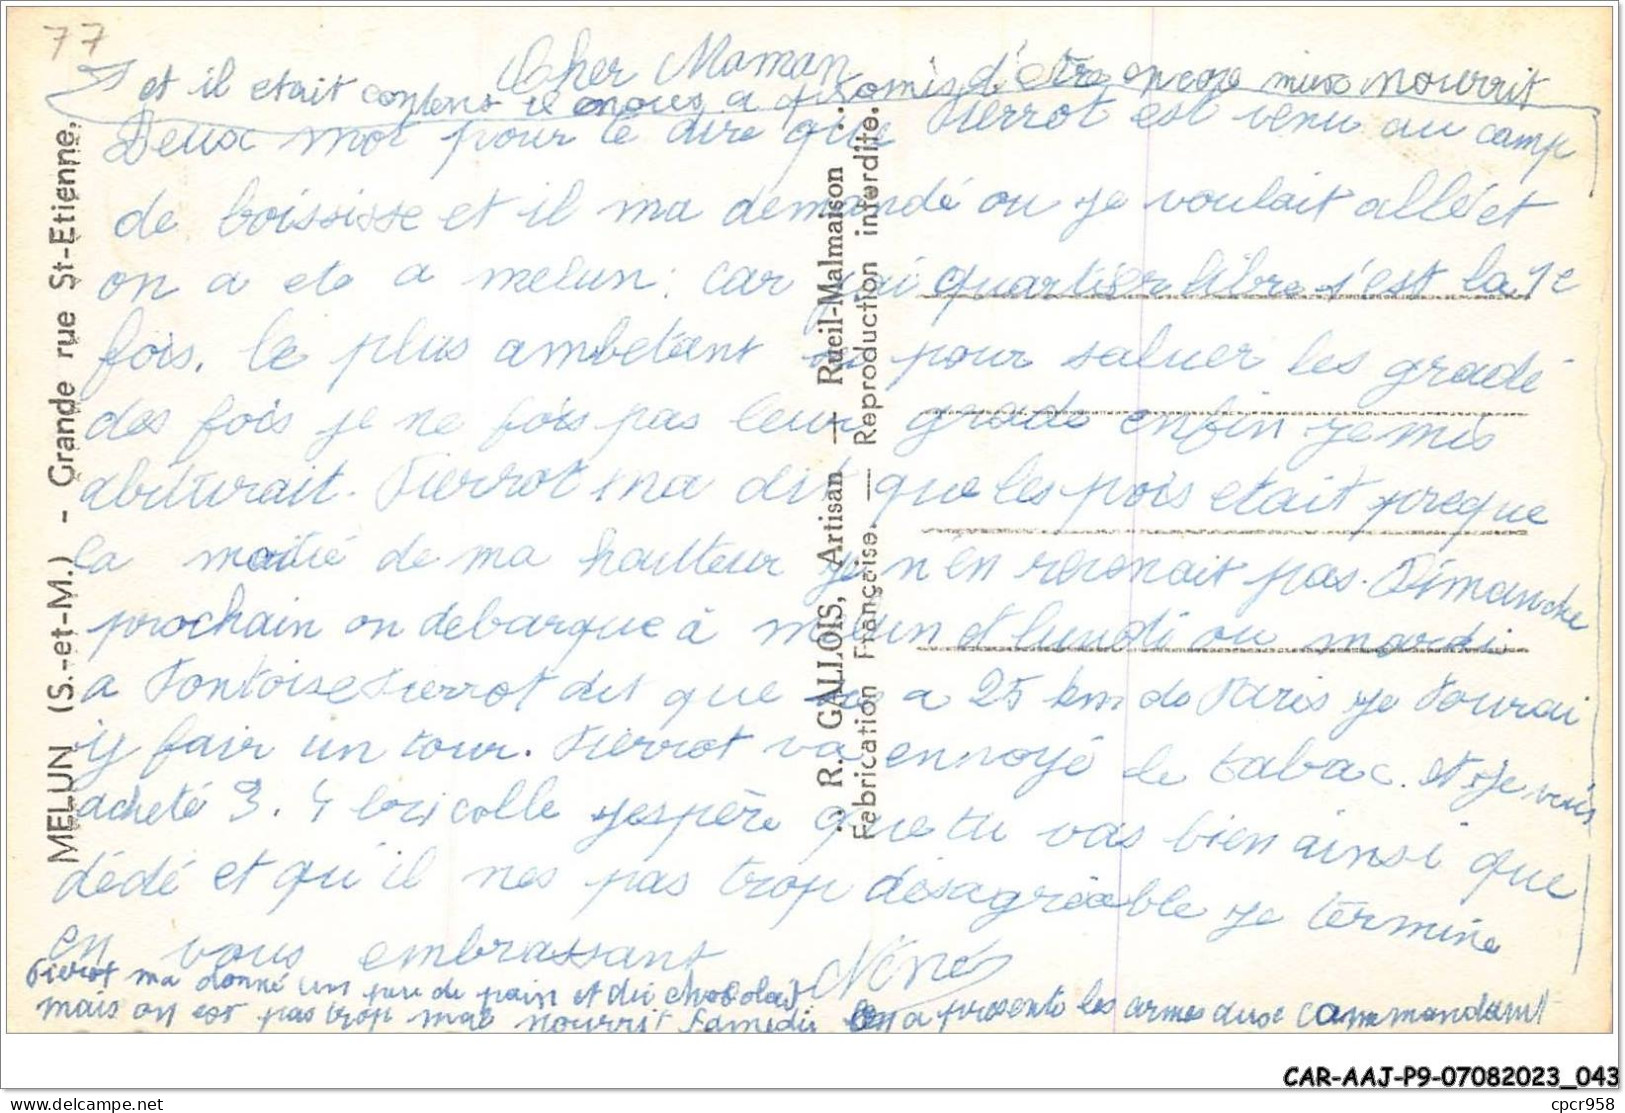 77
Cher Maman
et il etait content il nous a promis d'etre encore mieux nourrit
Deux mot pour te dire que Pierrot est venu au camp
de boississe et il ma demandé ou je voulait allé et
on a ete a melun. car j'ai quartier libre s'est la 1e
fois. le plus ambetant pour saluer les gradé
des fois je ne fois pas leur grade enfin je mis
abiturait. Pierrot ma dit que les pois etait preque
la moitié de ma hautteur je n'en revenait pas. Dimanche
prochain on debarque à melun et lundi ou mardi
a Pontoise Pierrot dit que a 25 km de Paris je Pourai
y fair un tour. Pierrot va envoyé le tabac. et je vais
acheté 3. 4 bricolle j'espère que tu vas bien ainsi que
dédé et qu'il nes pas trop désagréable je termine
en vous embrassant
Néné
Pierrot ma donné un peu de pain et du chocolat
mais on est pas trop mal nourrit Samedi on a presente les armes aux commandant
MELUN (S.-et-M.) - Grande rue St-Etienne.
R. GALLOIS, Artisan — Rueil-Malmaison
Fabrication Française. — Reproduction interdite.
CAR-AAJ-P9-07082023_043
www.delcampe.net
cpcr958